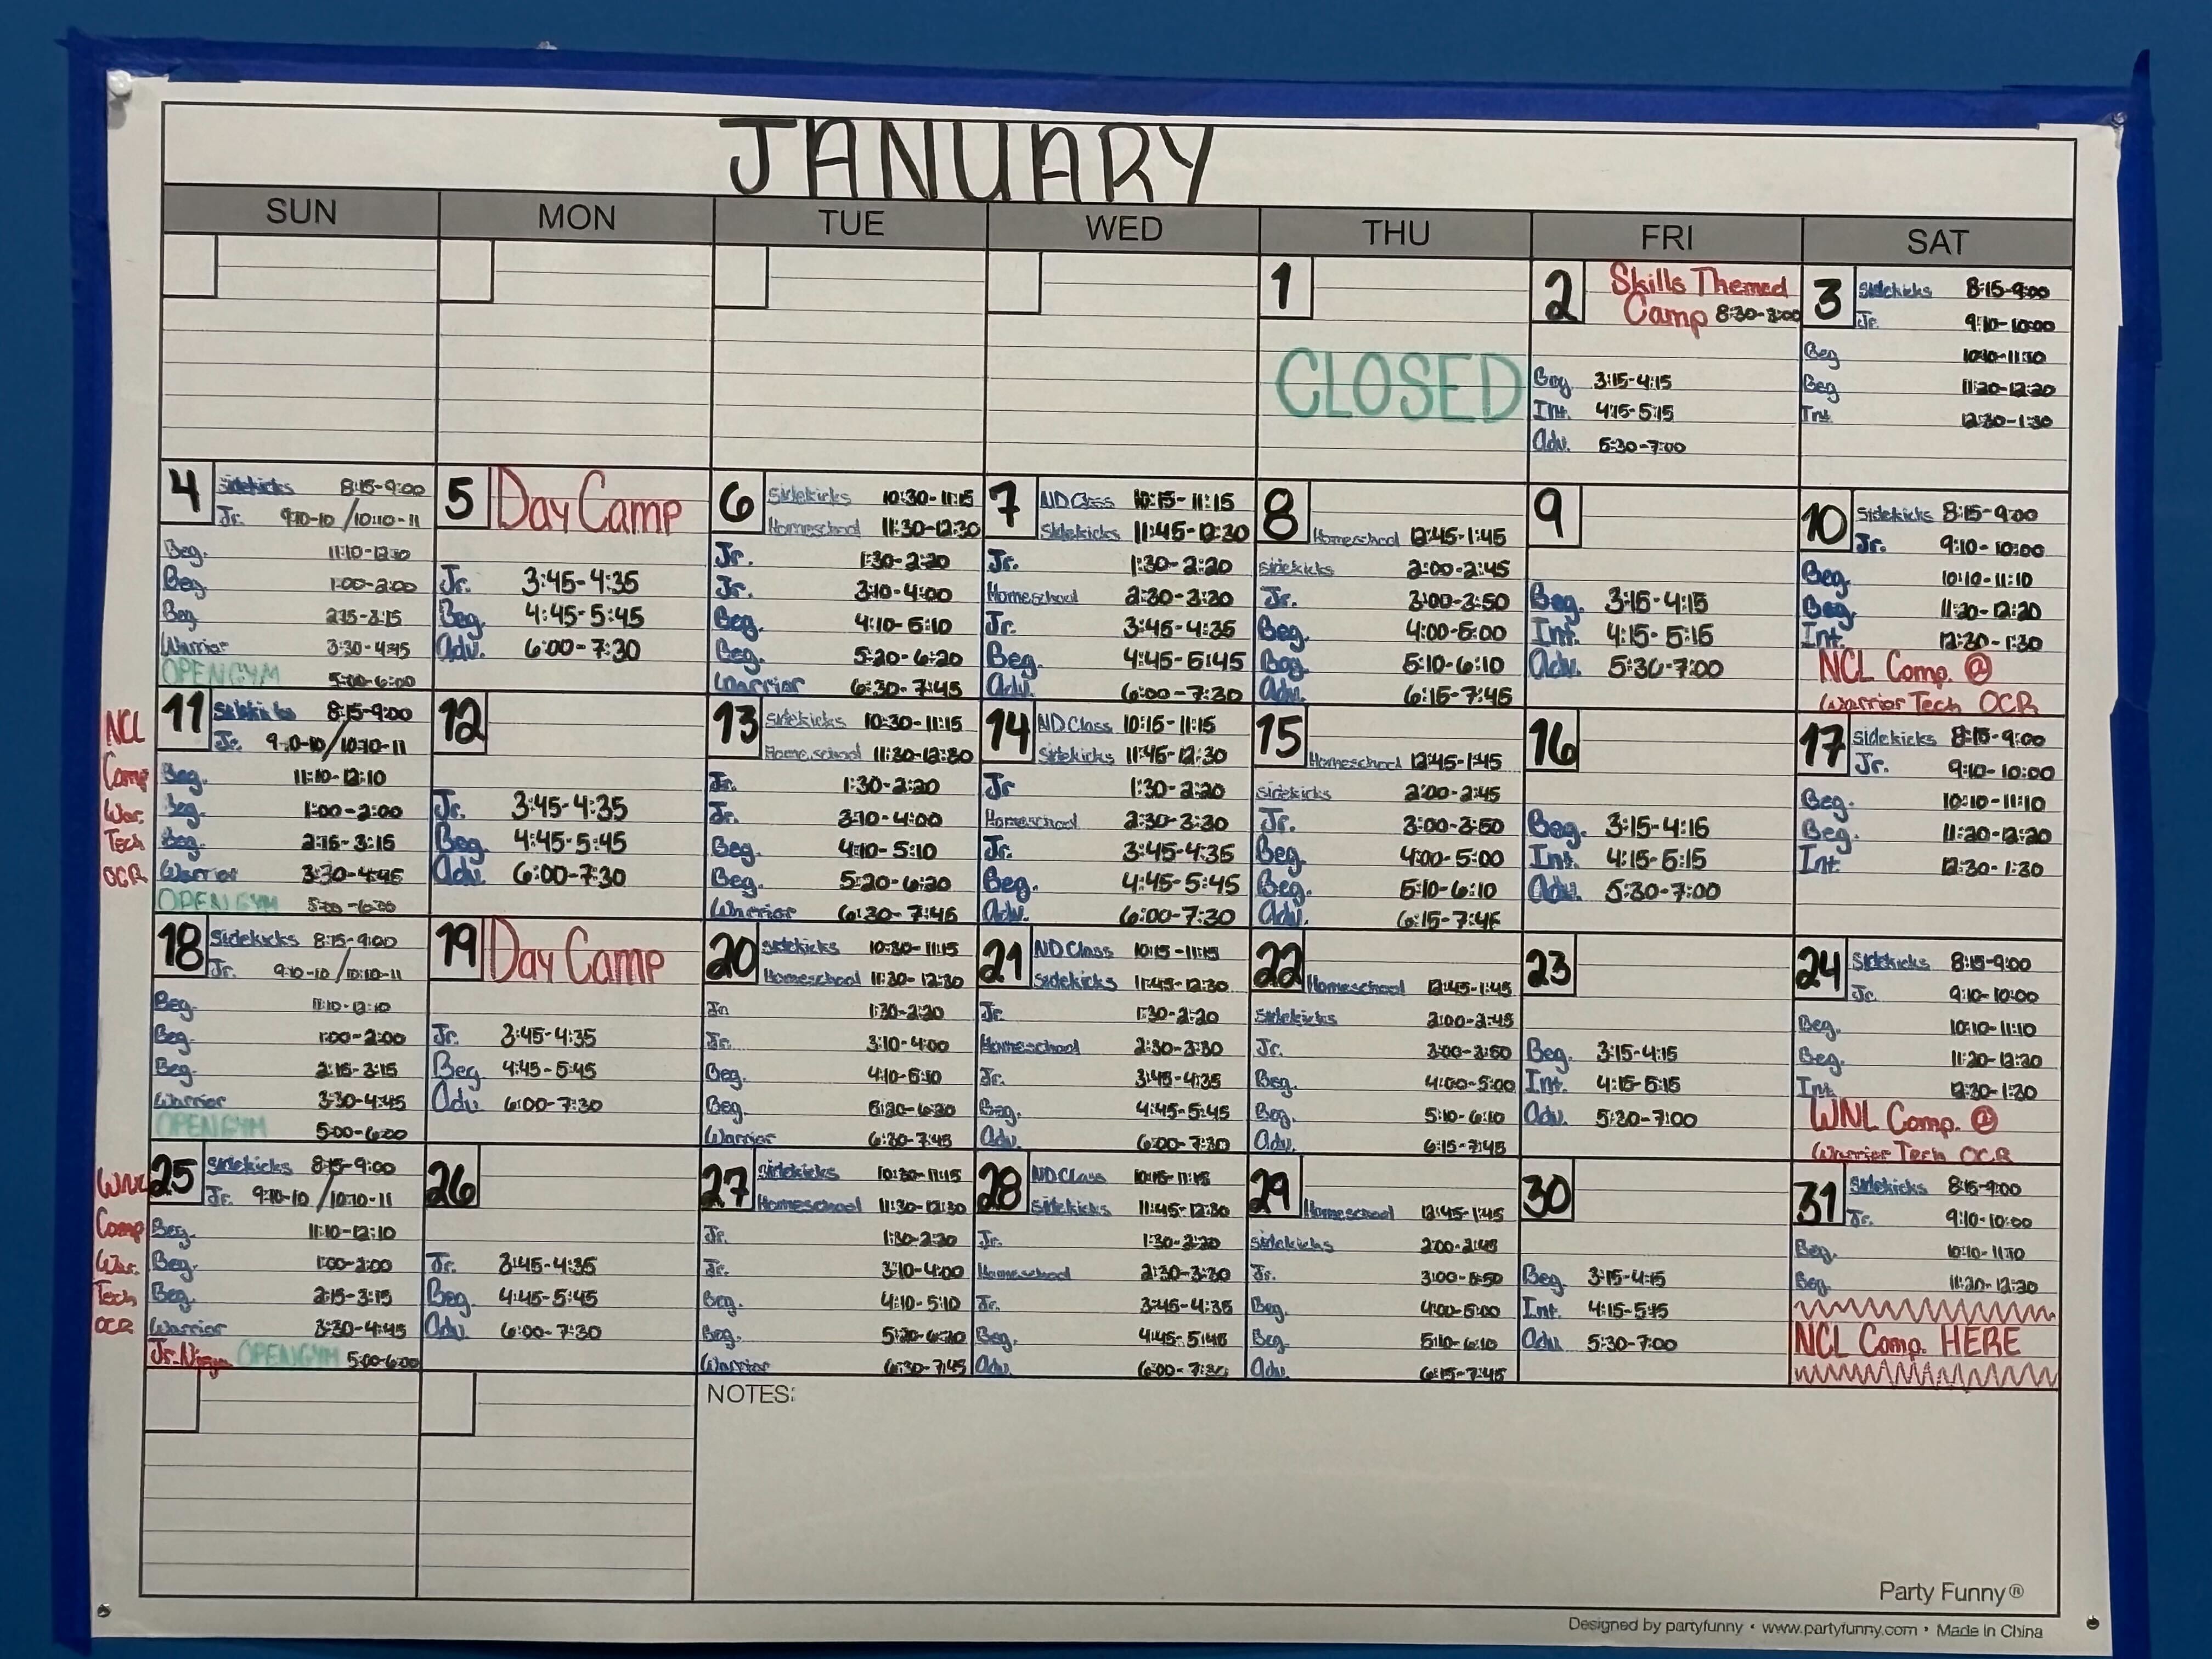 JANUARY
SUN MON TUE WED THU FRI SAT
1
CLOSED
2 Skills Themed
Camp 8:30-3:00
Beg. 3:15-4:15
Int. 4:15-5:15
Adv. 5:30-7:00
3 Sidekicks 8:15-9:00
Jr. 9:10-10:00
Beg 10:10-11:10
Beg 11:20-12:20
Int. 12:30-1:30
4 Sidekicks 8:15-9:00
Jr. 9:10-10/10:10-11
Beg. 11:10-12:10
Beg 1:00-2:00
Beg 2:15-3:15
Warrior 3:30-4:45
OPEN GYM 5:00-6:00
5 Day Camp
Jr. 3:45-4:35
Beg. 4:45-5:45
Adv. 6:00-7:30
6 Sidekicks 10:30-11:15
Homeschool 11:30-12:30
Jr. 1:30-2:20
Jr. 3:10-4:00
Beg. 4:10-5:10
Beg. 5:20-6:20
Warrior 6:30-7:45
7 ND Class 10:15-11:15
Sidekicks 11:45-12:30
Jr. 1:30-2:20
Homeschool 2:30-3:30
Jr. 3:45-4:35
Beg. 4:45-5:45
Adv. 6:00-7:30
8
Homeschool 12:45-1:45
Sidekicks 2:00-2:45
Jr. 3:00-3:50
Beg. 4:00-5:00
Beg. 5:10-6:10
Adv. 6:15-7:45
9
Beg. 3:15-4:15
Int. 4:15-5:15
Adv. 5:30-7:00
10 Sidekicks 8:15-9:00
Jr. 9:10-10:00
Beg. 10:10-11:10
Beg. 11:20-12:20
Int. 12:30-1:30
NCL Comp. @
Warrior Tech OCR
NCL
Comp
War.
Tech
OCR
11 Sidekicks 8:15-9:00
Jr. 9:10-10/10:10-11
Beg. 11:10-12:10
Beg. 1:00-2:00
Beg. 2:15-3:15
Warrior 3:30-4:45
OPEN GYM 5:00-6:00
12
Jr. 3:45-4:35
Beg. 4:45-5:45
Adv. 6:00-7:30
13 Sidekicks 10:30-11:15
Homeschool 11:30-12:30
Jr. 1:30-2:20
Jr. 3:10-4:00
Beg. 4:10-5:10
Beg. 5:20-6:20
Warrior 6:30-7:45
14 ND Class 10:15-11:15
Sidekicks 11:45-12:30
Jr 1:30-2:20
Homeschool 2:30-3:30
Jr. 3:45-4:35
Beg. 4:45-5:45
Adv. 6:00-7:30
15
Homeschool 12:45-1:45
Sidekicks 2:00-2:45
Jr. 3:00-3:50
Beg. 4:00-5:00
Beg. 5:10-6:10
Adv. 6:15-7:45
16
Beg. 3:15-4:15
Int. 4:15-5:15
Adv. 5:30-7:00
17 Sidekicks 8:15-9:00
Jr. 9:10-10:00
Beg. 10:10-11:10
Beg. 11:20-12:20
Int. 12:30-1:30
18 Sidekicks 8:15-9:00
Jr. 9:10-10/10:10-11
Beg. 11:10-12:10
Beg. 1:00-2:00
Beg. 2:15-3:15
Warrior 3:30-4:45
OPEN GYM 5:00-6:00
19 Day Camp
Jr. 3:45-4:35
Beg 4:45-5:45
Adv. 6:00-7:30
20 Sidekicks 10:30-11:15
Homeschool 11:30-12:30
Jr. 1:30-2:20
Jr. 3:10-4:00
Beg. 4:10-5:10
Beg. 5:20-6:20
Warrior 6:30-7:45
21 ND Class 10:15-11:15
Sidekicks 11:45-12:30
Jr. 1:30-2:20
Homeschool 2:30-3:30
Jr. 3:45-4:35
Beg. 4:45-5:45
Adv. 6:00-7:30
22
Homeschool 12:45-1:45
Sidekicks 2:00-2:45
Jr. 3:00-3:50
Beg. 4:00-5:00
Beg. 5:10-6:10
Adv. 6:15-7:45
23
Beg. 3:15-4:15
Int. 4:15-5:15
Adv. 5:30-7:00
24 Sidekicks 8:15-9:00
Jr. 9:10-10:00
Beg. 10:10-11:10
Beg. 11:20-12:20
Int. 12:30-1:30
WNL Comp. @
Warrior Tech OCR
WNL
Comp
War.
Tech
OCR
25 Sidekicks 8:15-9:00
Jr. 9:10-10/10:10-11
Beg. 11:10-12:10
Beg. 1:00-2:00
Beg. 2:15-3:15
Warrior 3:30-4:45
Jr. Ninja OPEN GYM 5:00-6:00
26
Jr. 3:45-4:35
Beg. 4:45-5:45
Adv. 6:00-7:30
27 Sidekicks 10:30-11:15
Homeschool 11:30-12:30
Jr. 1:30-2:20
Jr. 3:10-4:00
Beg. 4:10-5:10
Beg. 5:20-6:20
Warrior 6:30-7:45
28 ND Class 10:15-11:15
Sidekicks 11:45-12:30
Jr. 1:30-2:20
Homeschool 2:30-3:30
Jr. 3:45-4:35
Beg. 4:45-5:45
Adv. 6:00-7:30
29
Homeschool 12:45-1:45
Sidekicks 2:00-2:45
Jr. 3:00-3:50
Beg. 4:00-5:00
Beg. 5:10-6:10
Adv. 6:15-7:45
30
Beg. 3:15-4:15
Int. 4:15-5:15
Adv. 5:30-7:00
31 Sidekicks 8:15-9:00
Jr. 9:10-10:00
Beg. 10:10-11:10
Beg. 11:20-12:20
NCL Comp. HERE
NOTES:
Party Funny®
Designed by partyfunny • www.partyfunny.com • Made In China